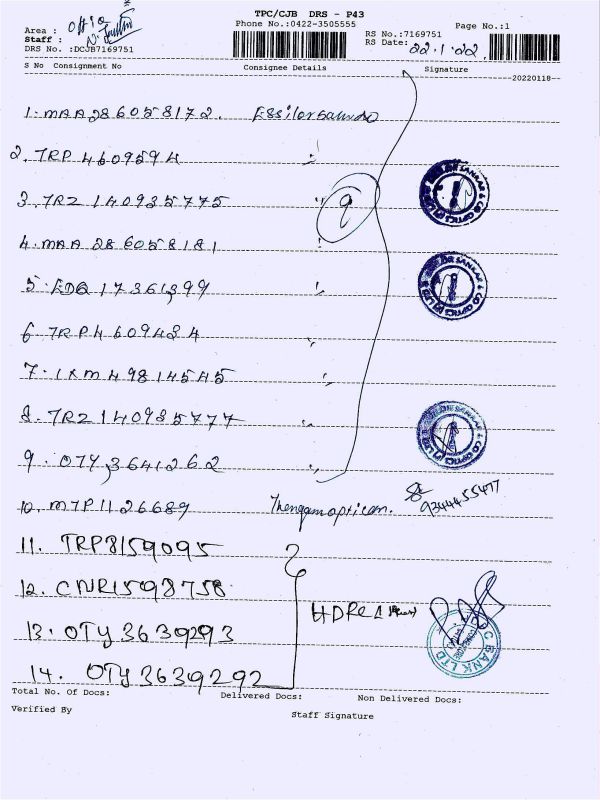 TPC/CJB DRS - P43
Phone No.:0422-3505555
Page No.:1
Area :
Staff :
DRS No. :DCJB7169751
RS No.:7169751
RS Date: 22.1.22
S No Consignment No Consignee Details Signature
20220118
1. MAA286058172.
2. TRP 4609594 "
3. TRZ 140935775 "
9
4. MAA 286058181 "
5. EDQ 17361399 "
6 TRP4609434 "
7. IXM49814545 "
8. TRZ140935777 "
9. OTY 3641262 "
10. MTP1126689
9344455477
11. TRP8159095
12. CNR1598758
HDFC
13. OTY 3639293
14. OTY 3639292
BANK LTD
Total No. of Docs: Delivered Docs: Non Delivered Docs:
Verified By Staff Signature